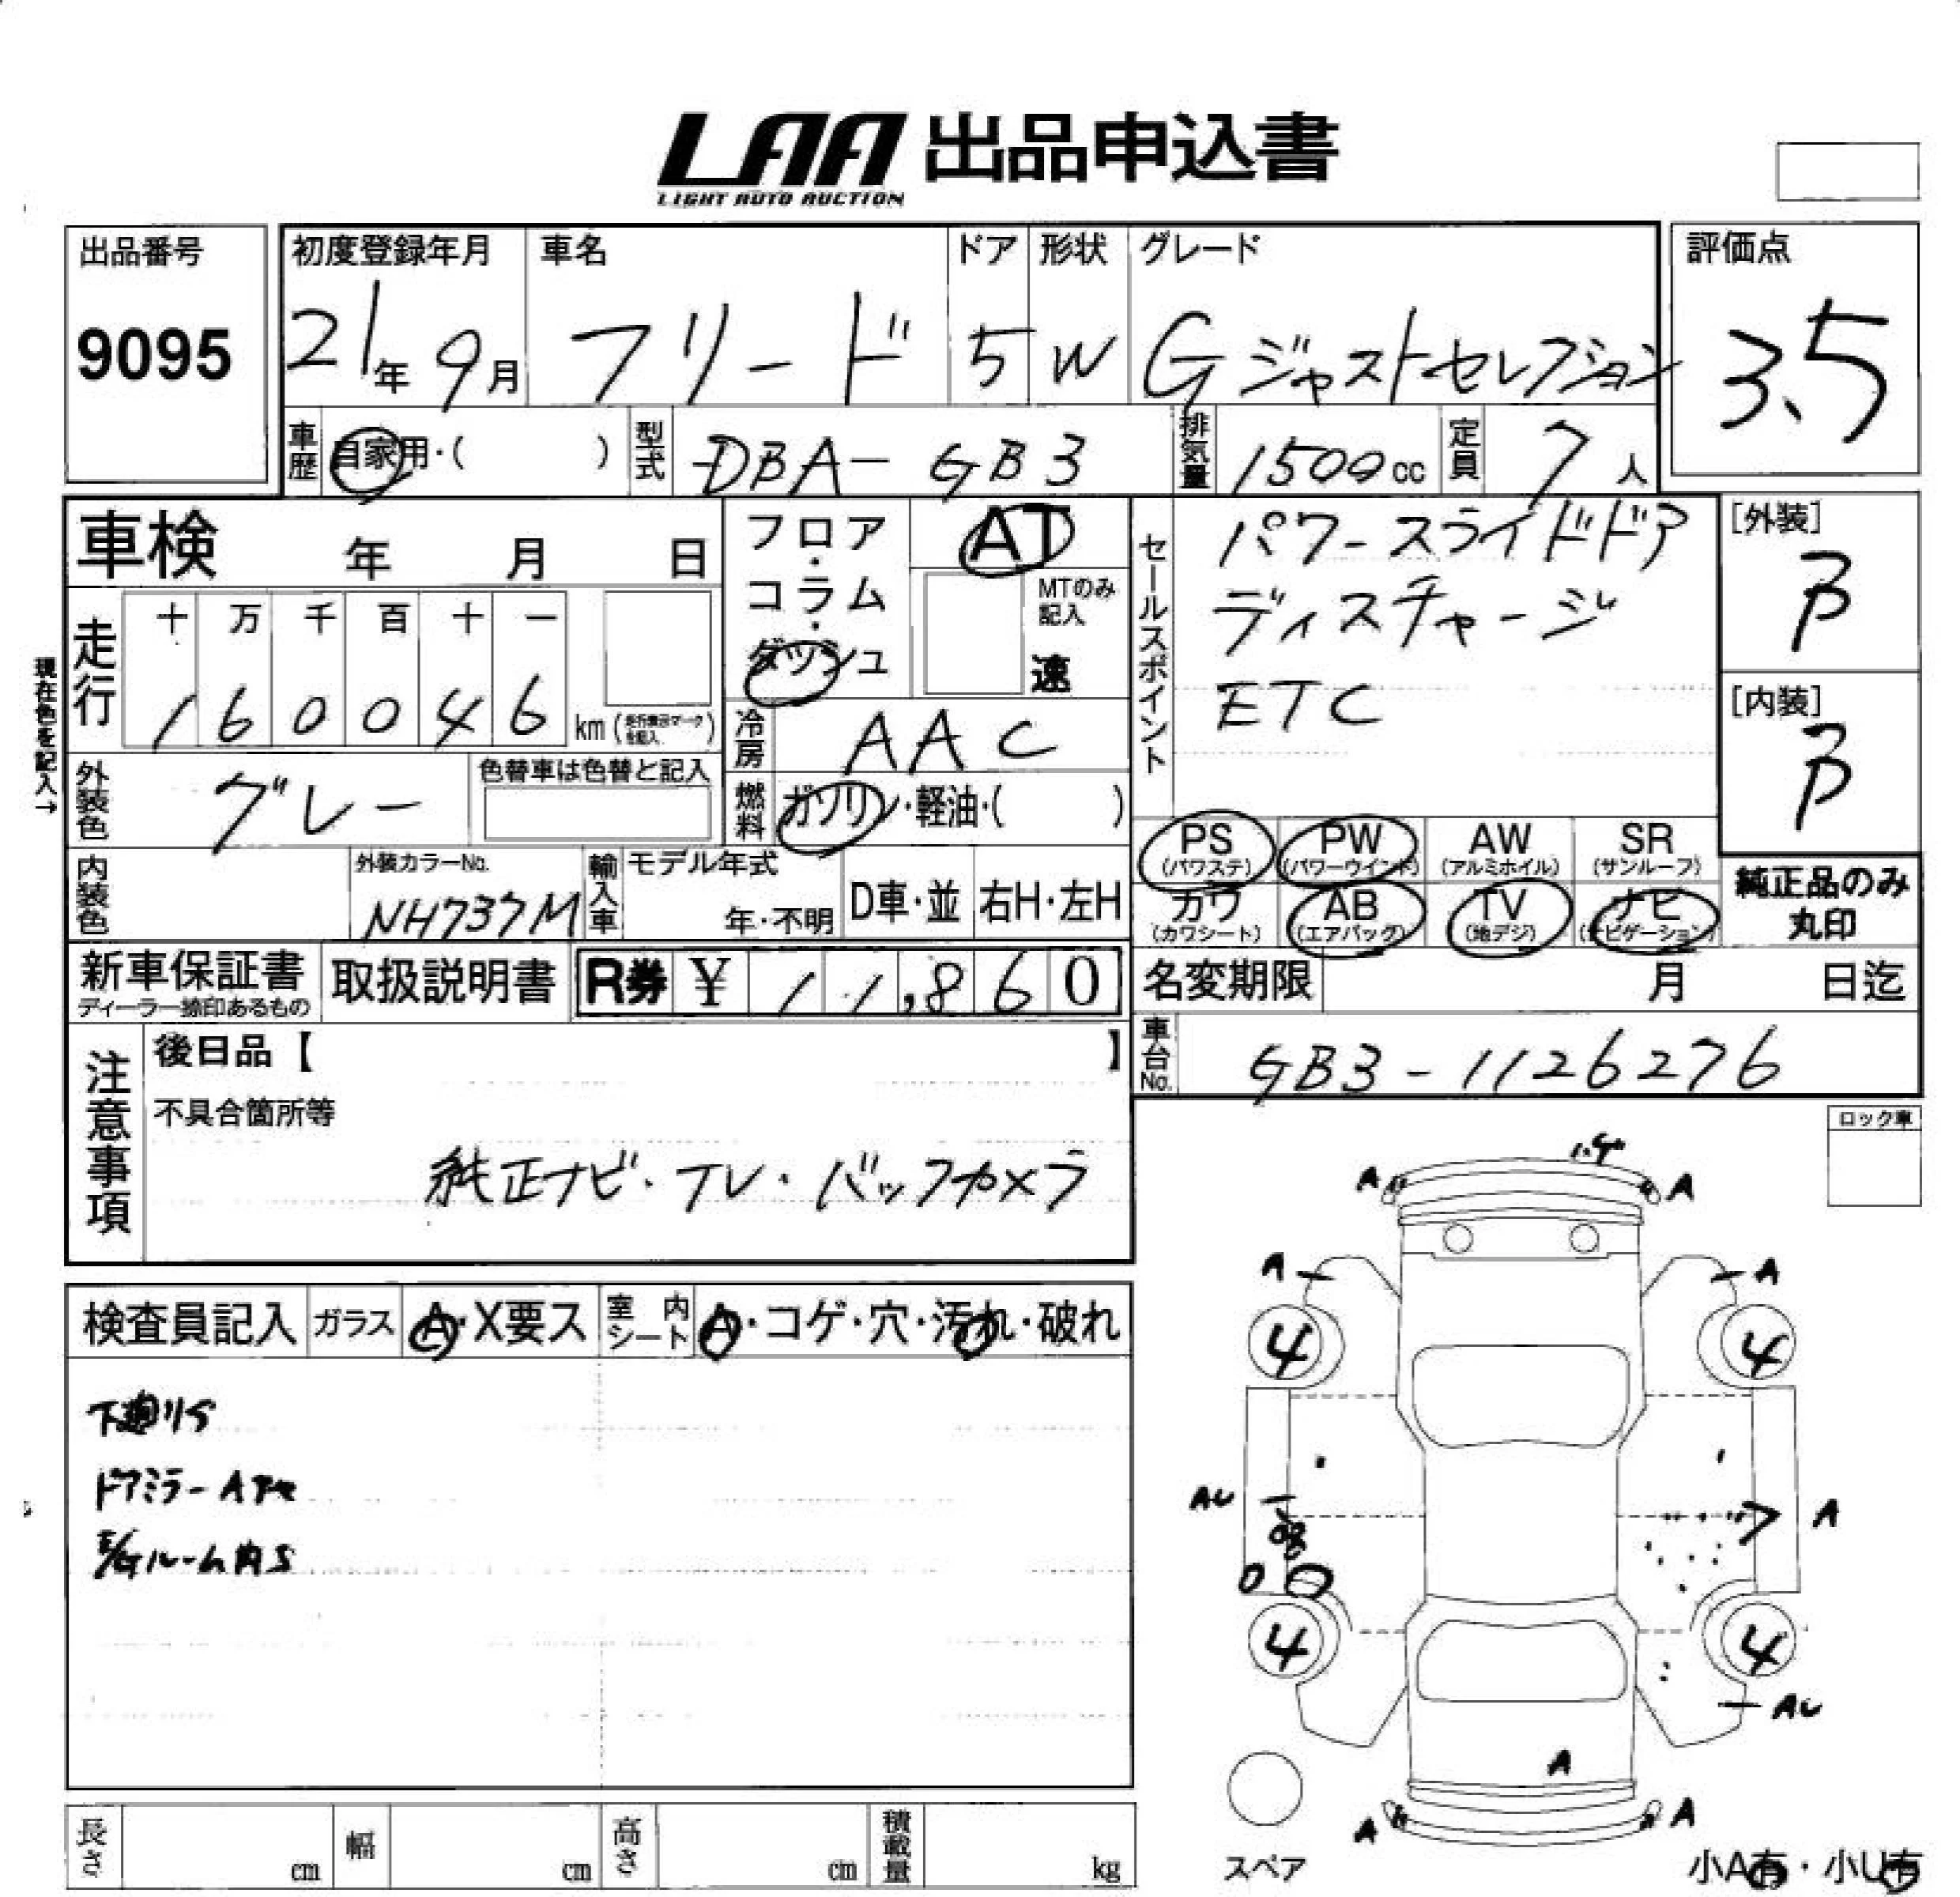 LAA 出品申込書
LIGHT AUTO AUCTION
出品番号
9095
初度登録年月
21年9月
車名
フリード
ドア
5
形状
W
グレード
Gジャストセレクション
評価点
3.5
車歴
自家用・( )
型式
DBA-GB3
排気量
1500cc
定員
7人
車検 年 月 日
フロア・コラム・ダッシュ
AT
MTのみ記入
速
セールスポイント
パワースライドドア
ディスチャージ
ETC
[外装]
B
[内装]
B
現在色を記入→
走行
十 万 千 百 十 一
1 6 0 0 4 6 km (走行表示マークを記入)
冷房
AAC
外装色
グレー
色替車は色替と記入
燃料
ガソリン・軽油・( )
PS (パワステ)
PW (パワーウインド)
AW (アルミホイル)
SR (サンルーフ)
内装色
外装カラーNo.
NH737M
輸入車
モデル年式
年・不明
D車・並
右H・左H
カワ (カワシート)
AB (エアバッグ)
TV (地デジ)
ナビ (ナビゲーション)
純正品のみ
丸印
新車保証書
ディーラー捺印あるもの
取扱説明書
R券 ¥ 11,860
名変期限 月 日迄
注意事項
後日品【 】
不具合箇所等
純正ナビ・TV・バックカメラ
車台No.
GB3-1126276
ロック車
検査員記入
ガラス
A・X要ス
室内シート
A・コゲ・穴・汚れ・破れ
下廻りS
ドアミラーA
E/Gルーム内S
A
A
A
A
4
4
AU
A
4
4
AU
A
A
A
スペア
小A有・小U有
長さ cm
幅 cm
高さ cm
積載量 kg